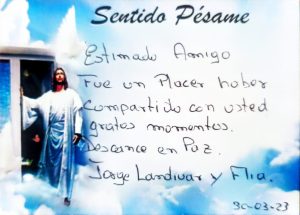 Sentido Pésame
Estimado Amigo
Fue un Placer haber
Compartido con usted
gratos momentos.
Descance en Paz.
Jorge Landivar y Flia.
30-03-23